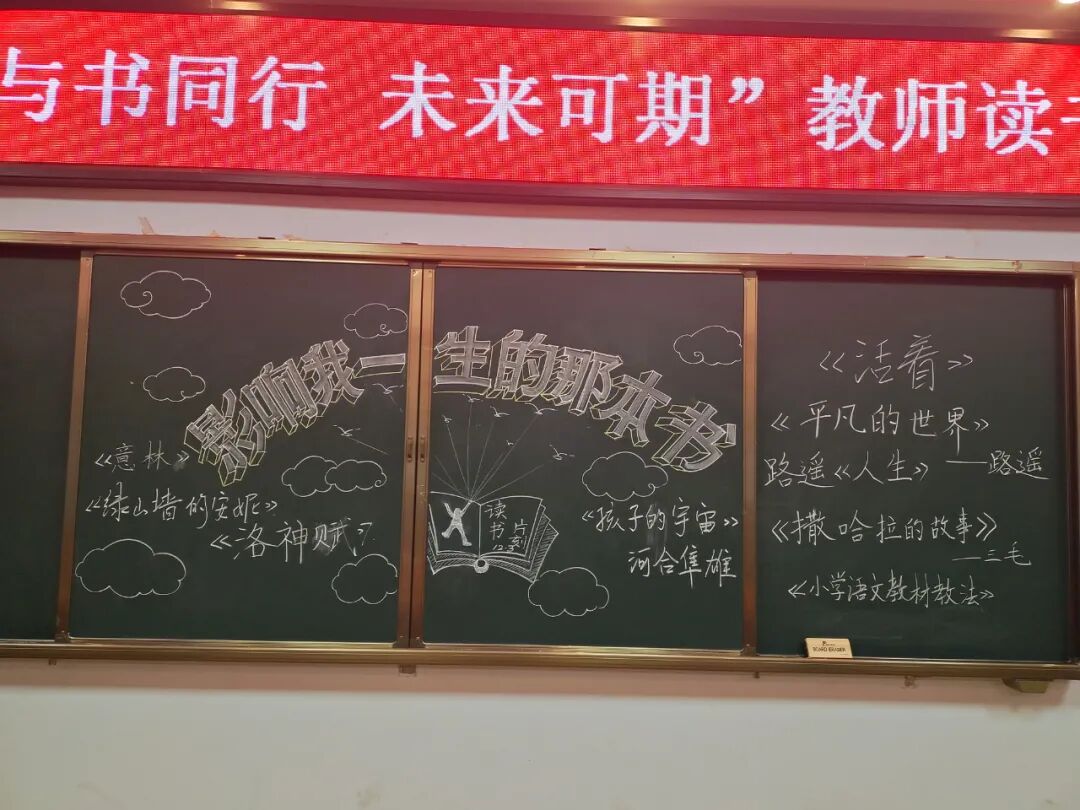 与书同行 未来可期”教师读书
影响我一生的那本书
《意林》
《绿山墙的安妮》
《洛神赋》
读
书
《孩子的宇宙》
河合隼雄
《活着》
《平凡的世界》
路遥《人生》——路遥
《撒哈拉的故事》
—三毛
《小学语文教材教法》
BOARD ERASER